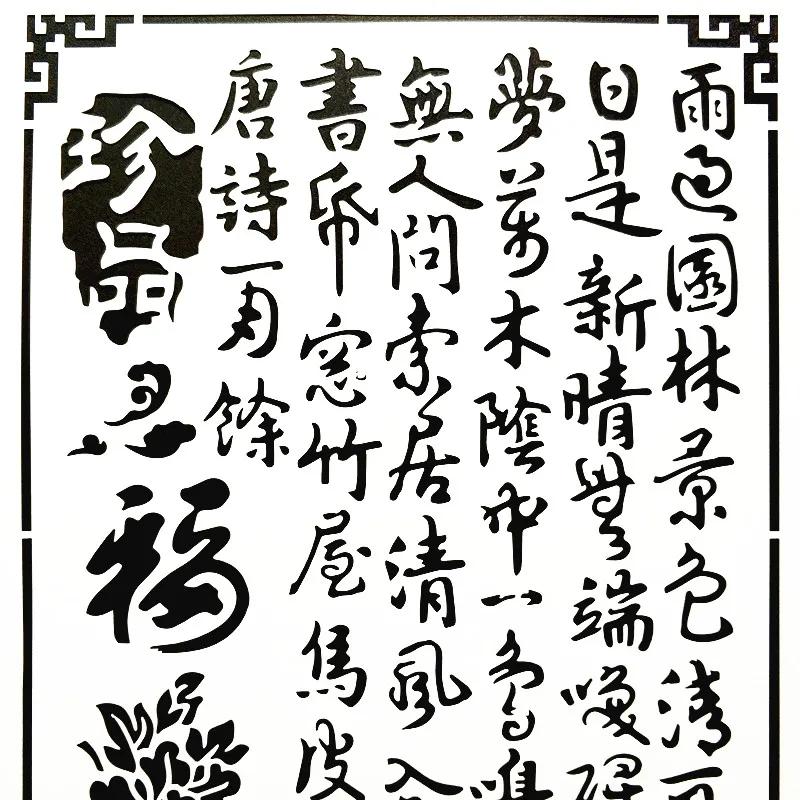 雨過園林景色清可
日是新晴無端喚
夢萬木陰中一鳥鳴
無人問索居清風入
書帋窓竹屋馬皮
唐詩一餘
珍品
忍
福